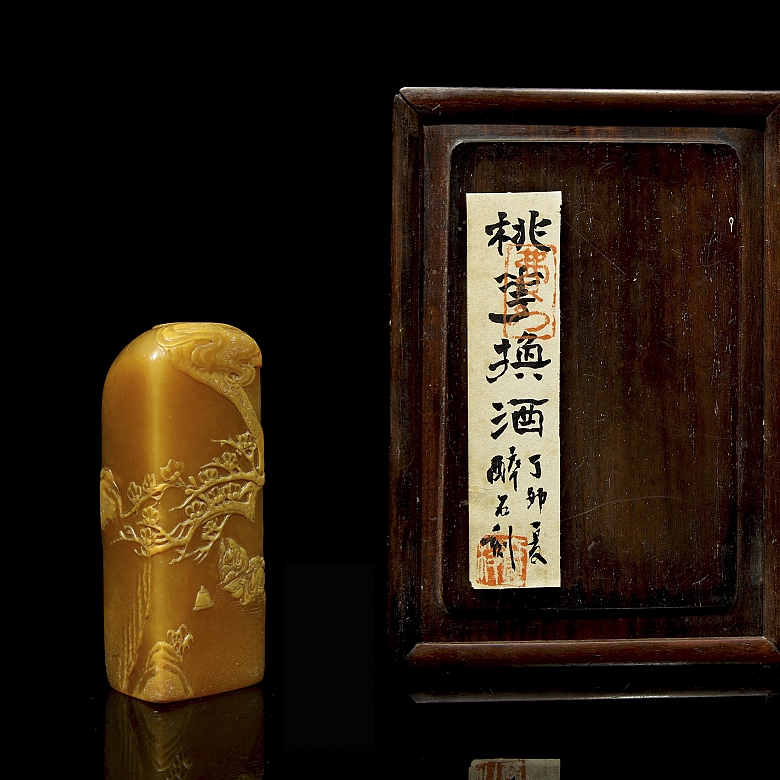 桃華換酒
丁卯夏
醉石刻